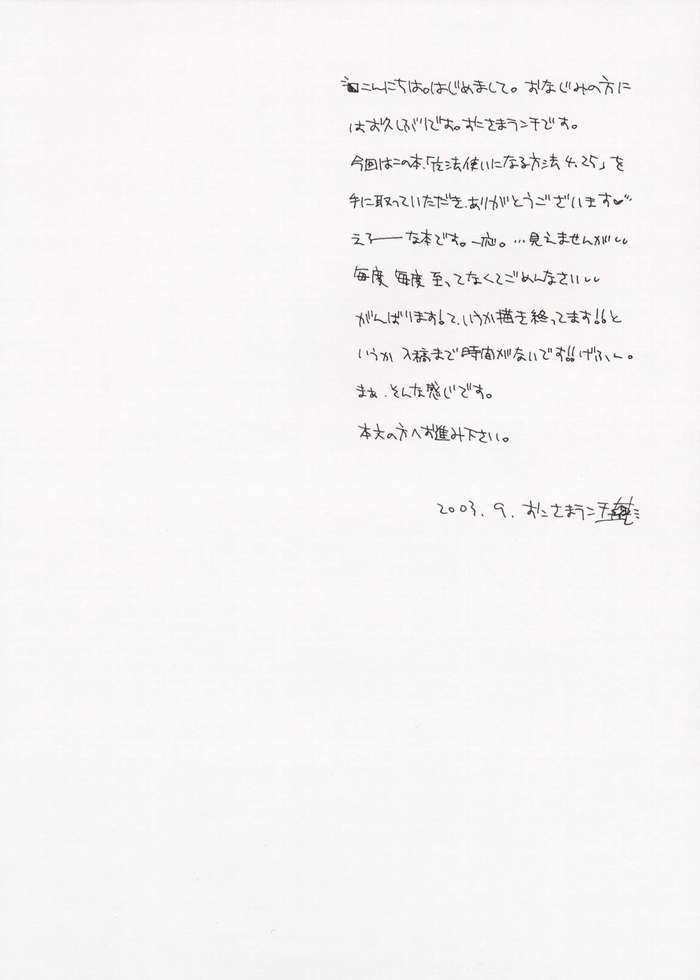 こんにちは。はじめまして。おなじみの方に
はお久しぶりです。おにさまランチです。
今回はこの本、「魔法使いになる方法4.25」を
手に取っていただき、ありがとうございます♥
えろーーな本です。一応。…見えませんが
毎度 毎度 至ってなくてごめんなさい
がんばります!て、いうか描き終ってます!!と
いうか 入稿まで時間がないです!!げふん。
まぁ、そんな感じです。
本文の方へお進み下さい。
2003.9. おにさまランチ